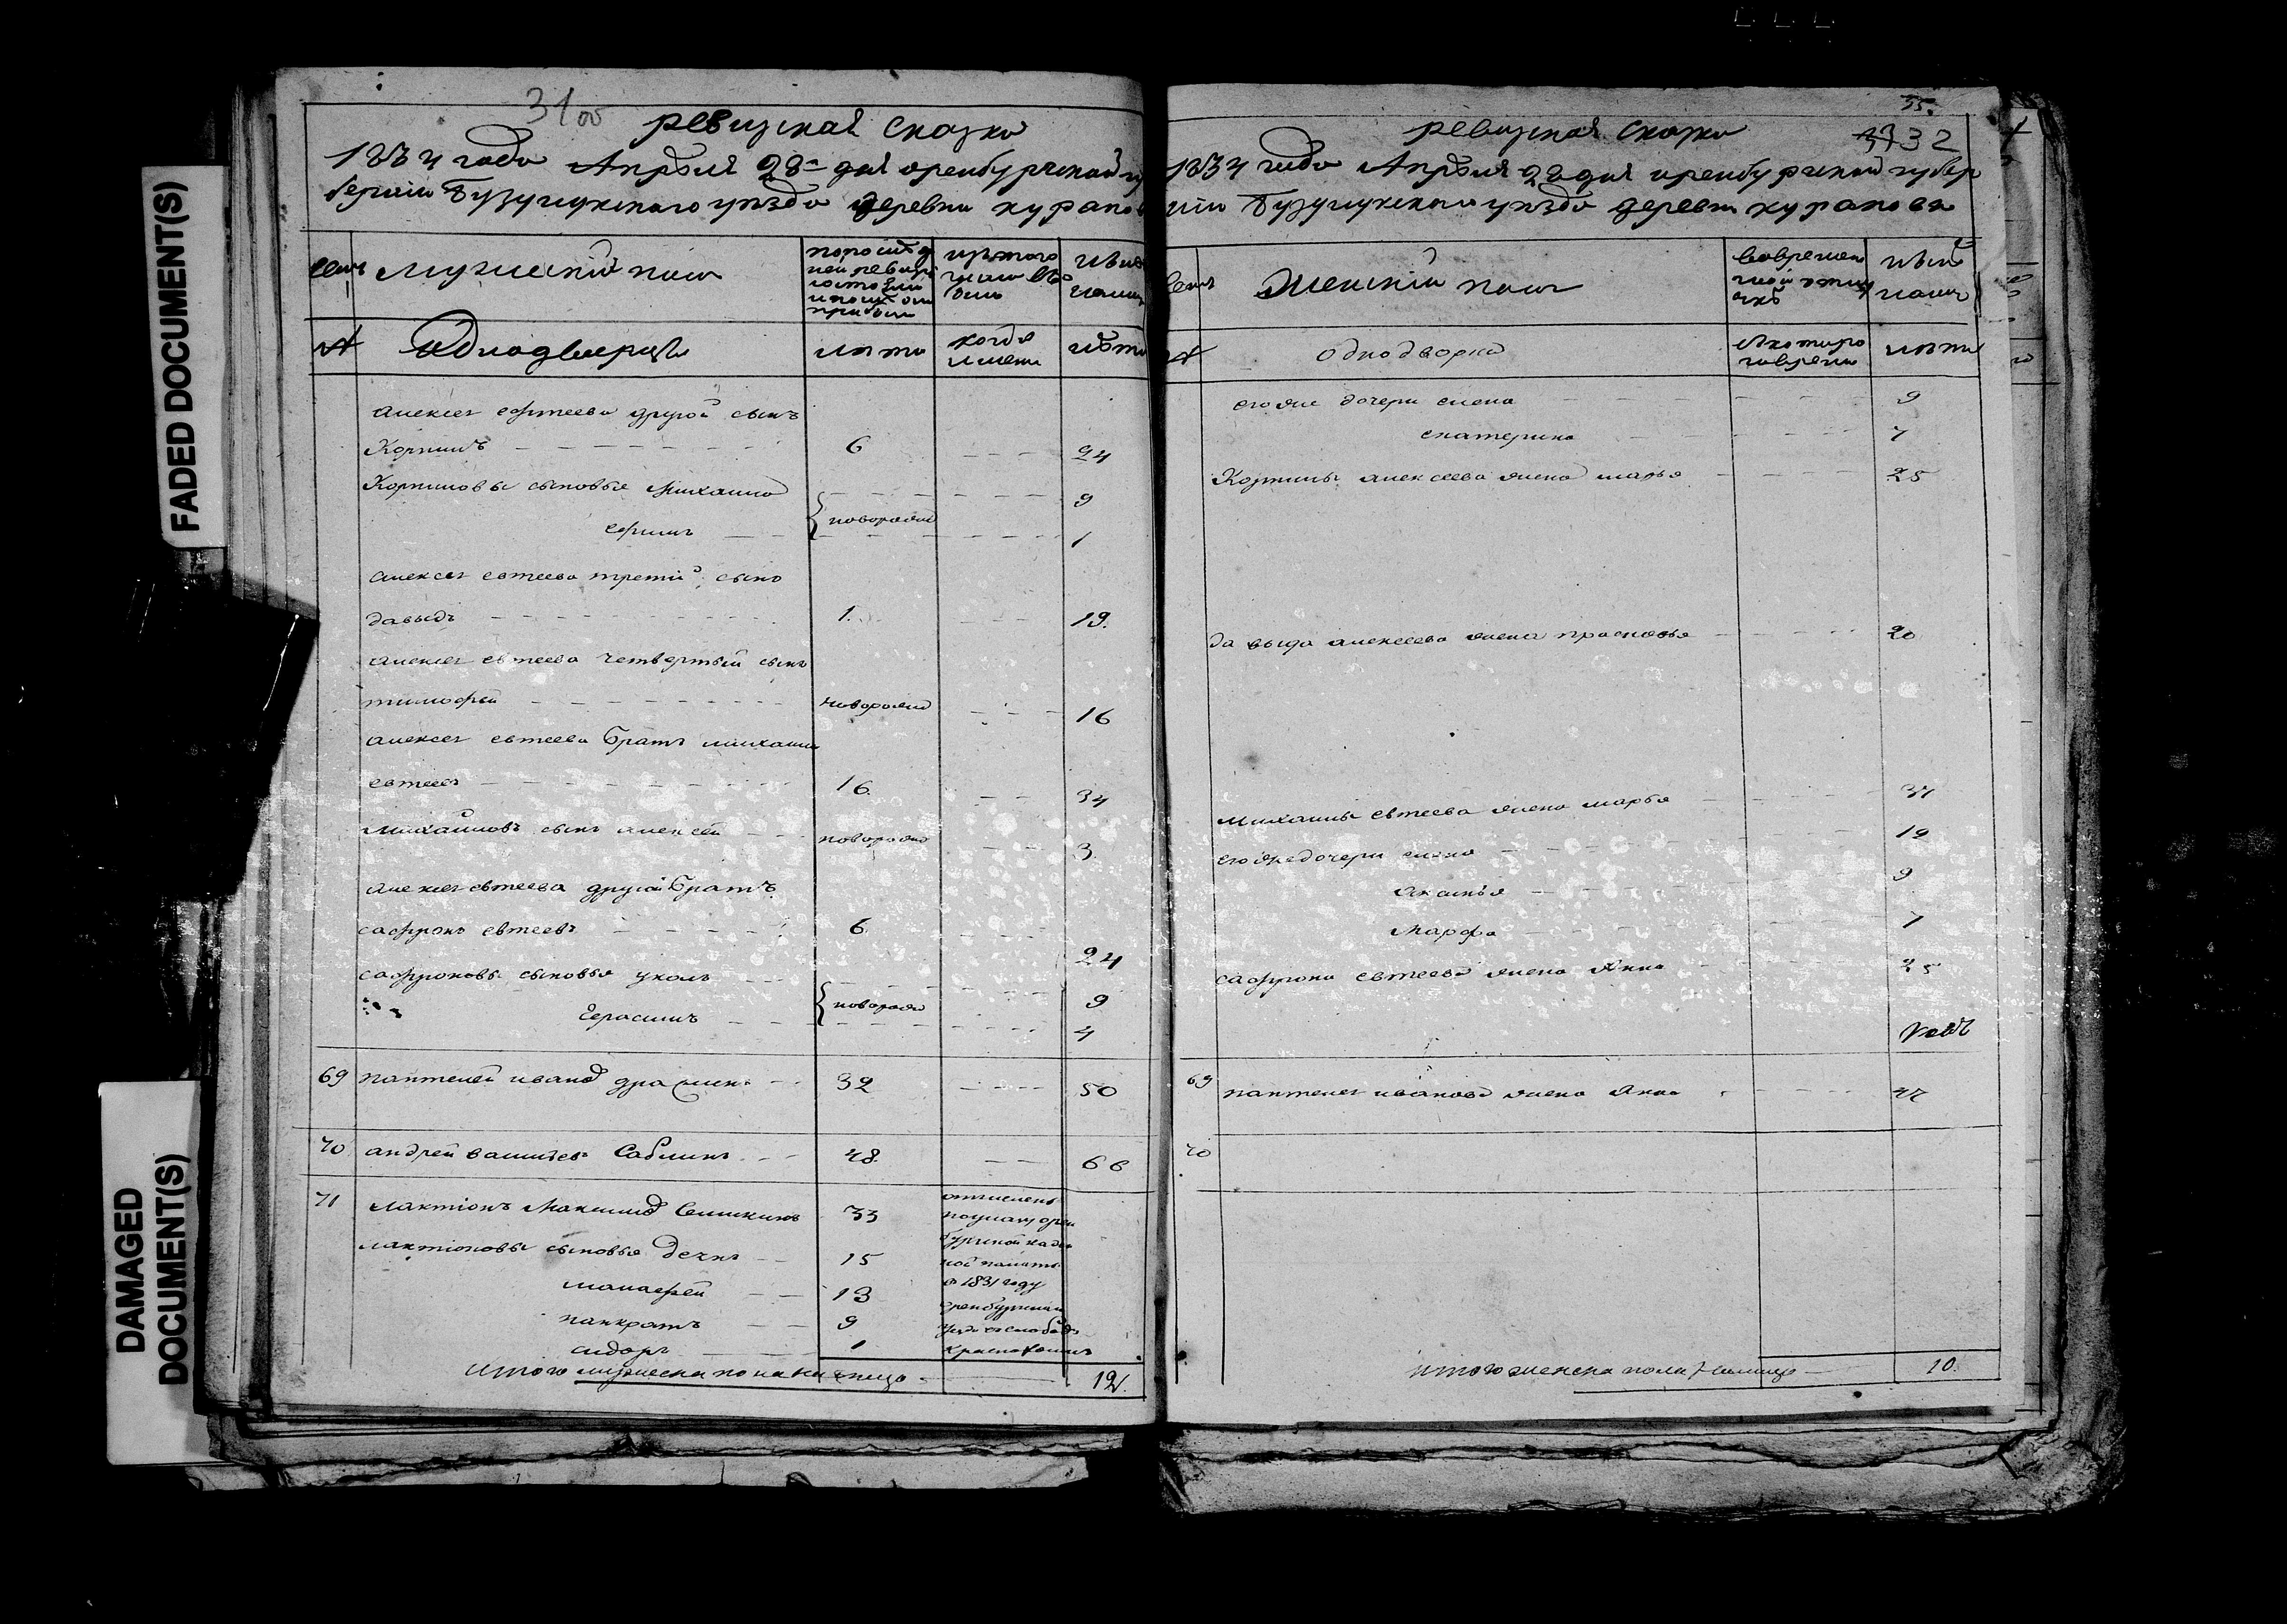 FADED DOCUMENT(S)
DAMAGED DOCUMENT(S)
31 об
ревизская сказка
1834 года Апреля 28 дня оренбургской гу
бернии Бузулукского уезда деревни куранов
муженскій полъ
№ Однодворцы лета когда именно лета
алексея евтеева другой сынъ
Корнилъ 6 24
Корниловы сыновья михаило 9
новорожд
ефимъ 1
алексея евтеева третій сынъ
давыдъ 1. 19.
алексея евтеева четвертый сынъ
тимофей новорожд 16
алексея евтеева братъ михаила
евтеевъ 16. 34
михайловъ сынъ алексей новорожд 3.
алексея евтеева другой братъ
сафронъ евтеевъ 6. 24
сафроновы сыновья 9
новорожд
герасимъ 4
69 пантелей иванов 32 50
70 андрей васильев Саблинъ 48. 66
71 лактіонъ Максимов Семикинъ 33
отчисленъ
по указу орен
бургской казен
ной палаты
в 1831 году
оренбургскаго
лактіоновы сыновья 15
малафей 13
панкратъ 9
сидоръ 1
Итого мужеска пола на лицо 12.
55.
32
ревизская сказка
1834 года Апреля 28 дня оренбургской губер
ніи Бузулукского уезда деревни куранова
Женскій полъ
№ однодворки лета
его же дочери елена 9
екатерина 7
Корнилы алексеева жена марья 25
давыда алексеева жена прасковья 20
михаилы евтеева жена марья 37
его же дочери елена 19
аксинья 9
марфа 1
сафрона евтеева жена Анна 25
69 пантелея иванова жена Анна 47
70
итого женска пола на лицо 10.